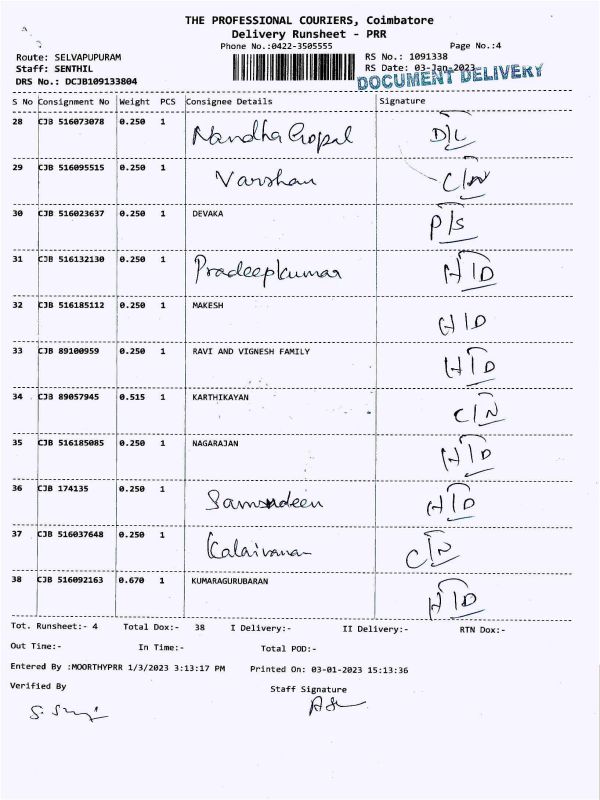 THE PROFESSIONAL COURIERS, Coimbatore
Delivery Runsheet - PRR
Phone No.:0422-3505555 Page No.:4
Route: SELVAPUPURAM RS No.: 1091338
Staff: SENTHIL RS Date: 03-Jan-2023
DRS No.: DCJB109133804 DOCUMENT DELIVERY
S No Consignment No Weight PCS Consignee Details Signature
28 CJB 516073078 0.250 1 Nandha Gopal D/L
29 CJB 516095515 0.250 1 Varshan C/N
30 CJB 516023637 0.250 1 DEVAKA P/S
31 CJB 516132130 0.250 1 Pradeepkumar H/D
32 CJB 516185112 0.250 1 MAKESH H/D
33 CJB 89100959 0.250 1 RAVI AND VIGNESH FAMILY H/D
34 CJB 89057945 0.515 1 KARTHIKAYAN C/N
35 CJB 516185085 0.250 1 NAGARAJAN H/D
36 CJB 174135 0.250 1 H/D
37 CJB 516037648 0.250 1 Kalaivanan C/N
38 CJB 516092163 0.670 1 KUMARAGURUBARAN H/D
Tot. Runsheet:- 4 Total Dox:- 38 I Delivery:- II Delivery:- RTN Dox:-
Out Time:- In Time:- Total POD:-
Entered By :MOORTHYPRR 1/3/2023 3:13:17 PM Printed On: 03-01-2023 15:13:36
Verified By Staff Signature